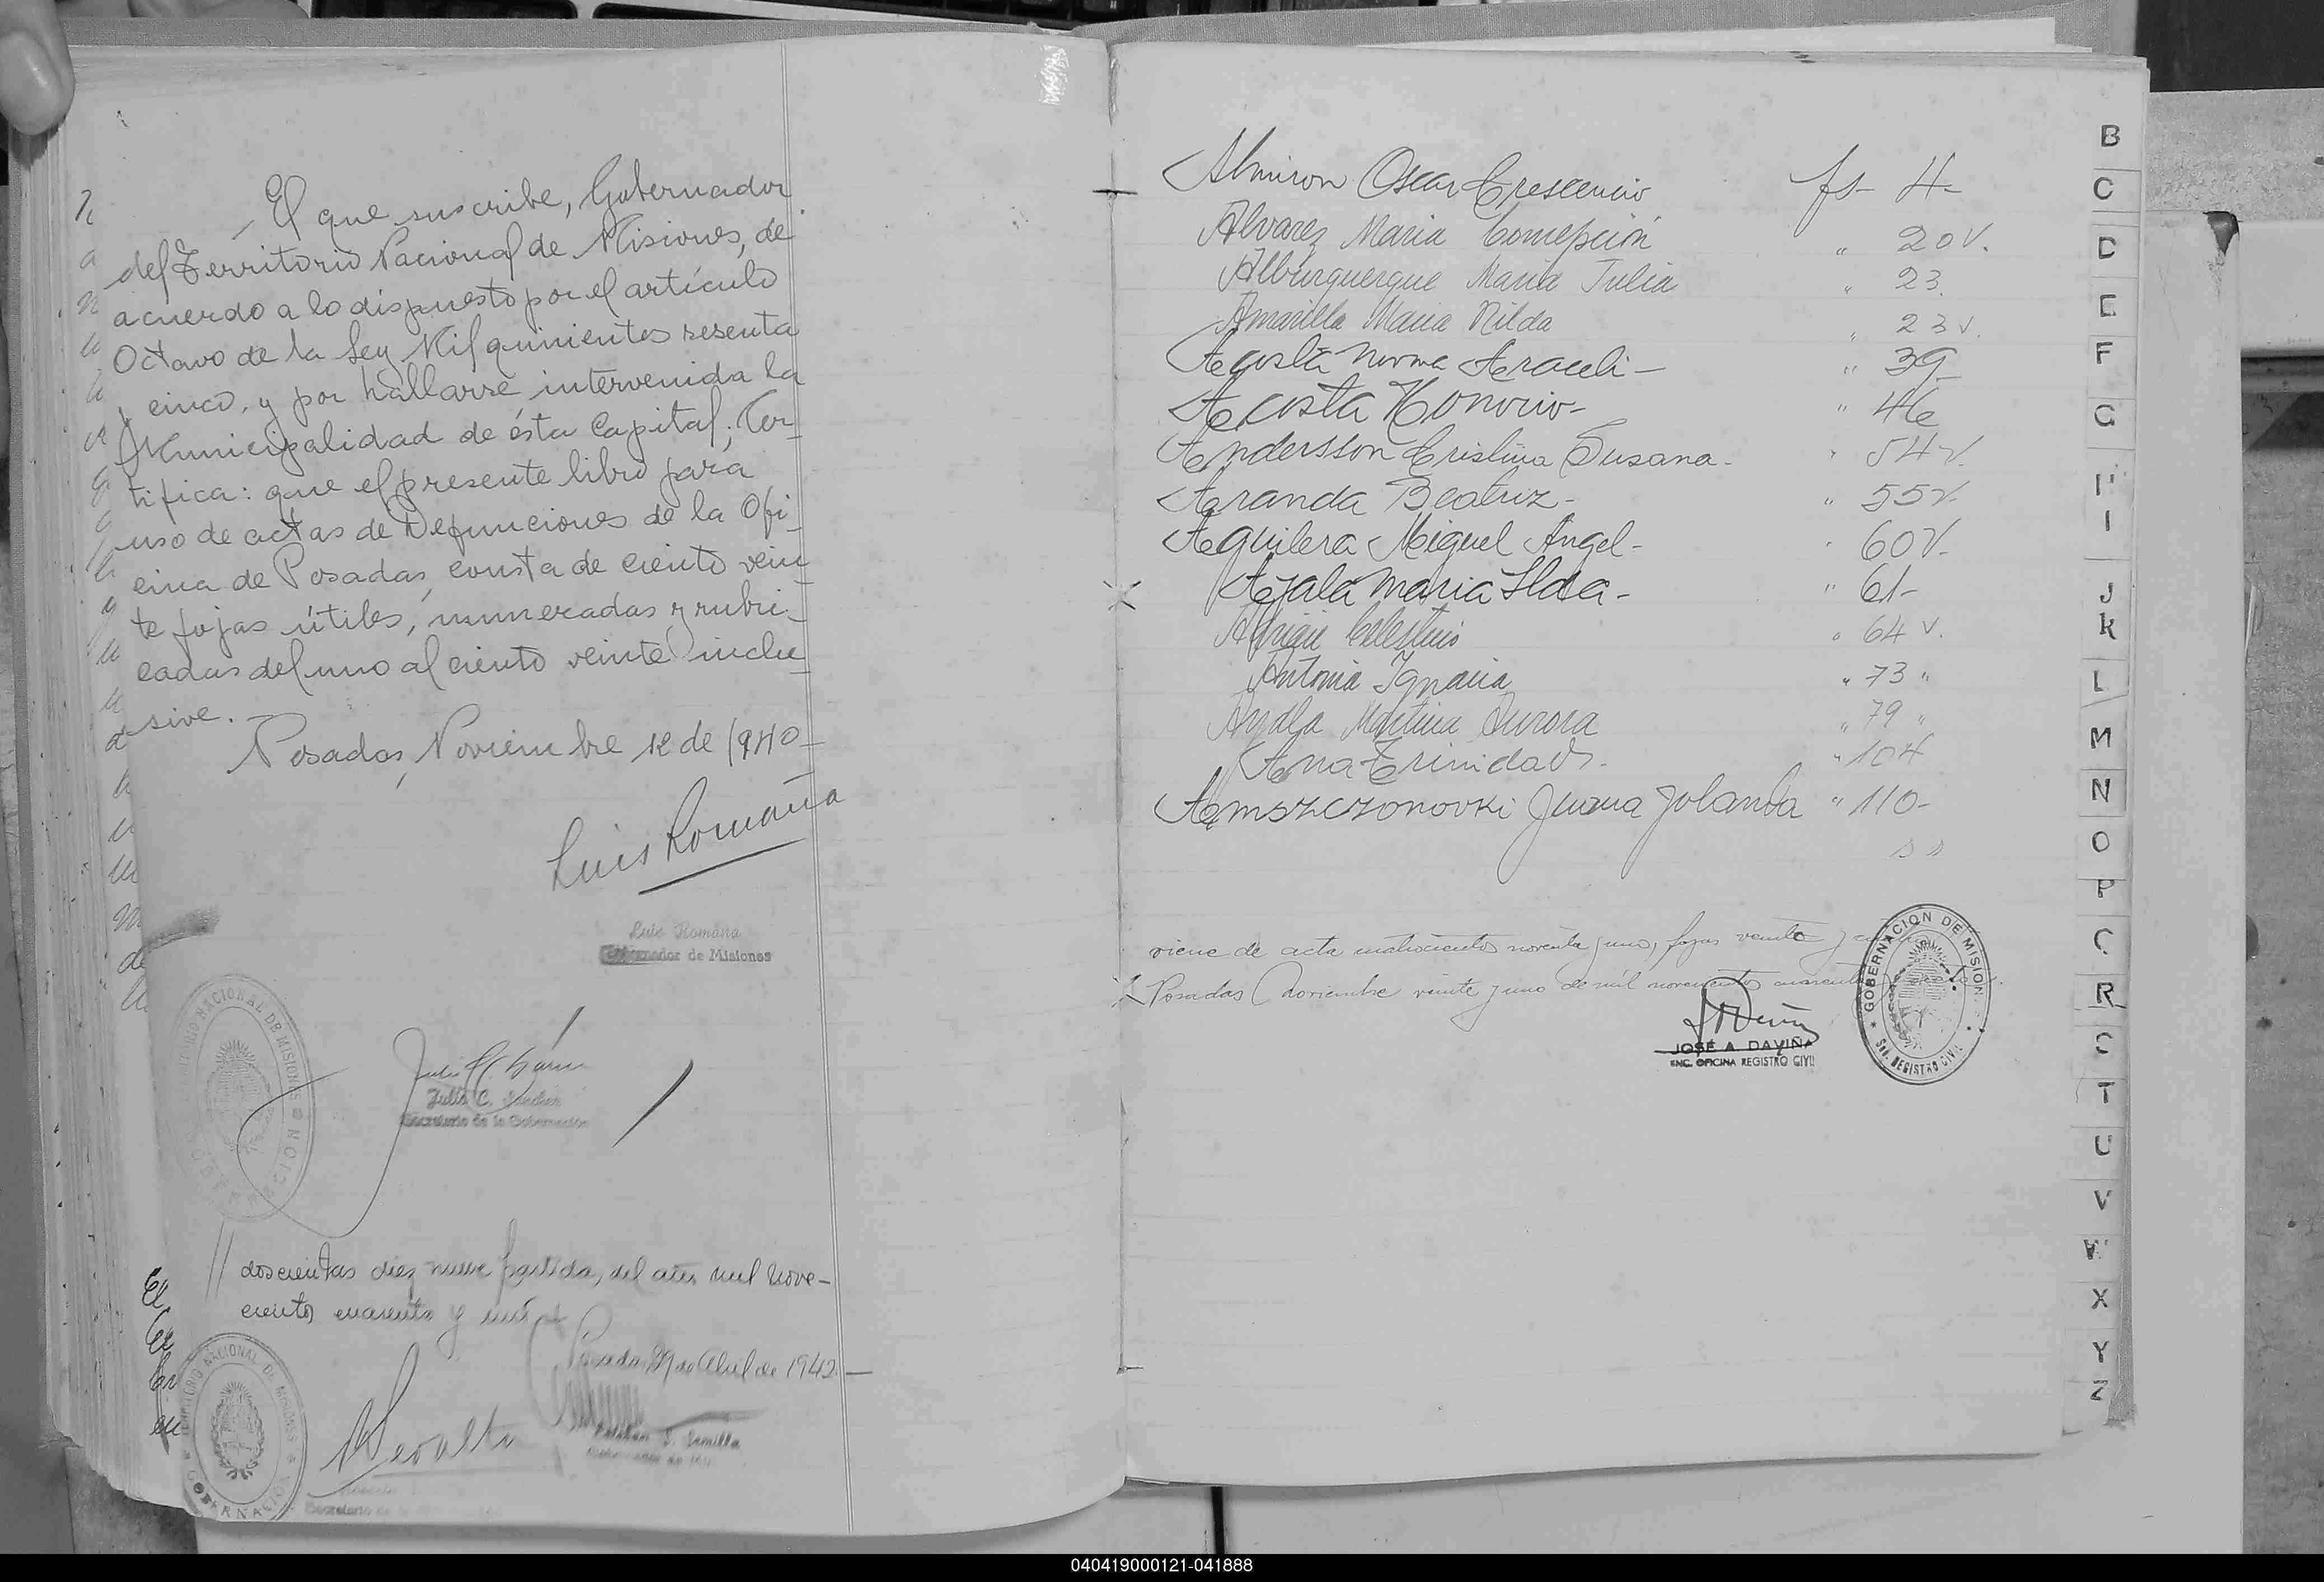 El que suscribe, Gobernador
del Territorio Nacional de Misiones, de
acuerdo a lo dispuesto por el artículo
Octavo de la Ley Mil quinientos sesenta
y cinco, y por hallarse intervenida la
Municipalidad de ésta Capital, Cer-
tifica: que el presente libro para
uso de actas de Defunciones de la Ofi-
cina de Posadas, consta de ciento vein-
te fojas útiles, numeradas y rubri-
cadas del uno al ciento veinte inclu-
sive.
Posadas, Noviembre 12 de 1940-
Luis Romaña
Luis Romaña
Gobernador de Misiones
TERRITORIO NACIONAL DE MISIONES
GOBERNACION
Julio C. Sánchez
Secretario de la Gobernación
// doscientas diez nueve partida, del año mil nove-
ciento cuarenta y uno
Posadas 29 de Abril de 1942.-
TERRITORIO NACIONAL DE MISIONES
GOBERNACION
Peralta
Secretario de la
Almiron Oscar Crescencio fs- 4-
Alvarez Maria Concepción " 20v.
Alburquerque Maria Julia " 23.
Amarilla Maria Nilda " 23v.
Acosta Norma Araceli- " 39-
Acosta Honorio- " 46
Andersson Cristina Susana- " 54v.
Aranda Beatriz- " 55v-
Aquilera Miguel Angel- " 60v-
Ayala Maria Ilda- " 61-
Celestino " 64v.
Antonia Ignacia " 73"
Ayala Martina Aurora " 79"
Ana Trinidad- " 104
Amszczonovki Juana Yolanda " 110-
viene de acta cuatrocientos noventa y uno, fojas veinte y
Posadas Noviembre veinte y uno de mil novecientos cuarenta
JOSÉ A. DAVIÑA
ENC. OFICINA REGISTRO CIVIL
GOBERNACION DE MISIONES
REGISTRO CIVIL
B
C
D
E
F
G
H
I
J
K
L
M
N
O
P
Q
R
S
T
U
V
W
X
Y
Z
040419000121-041888